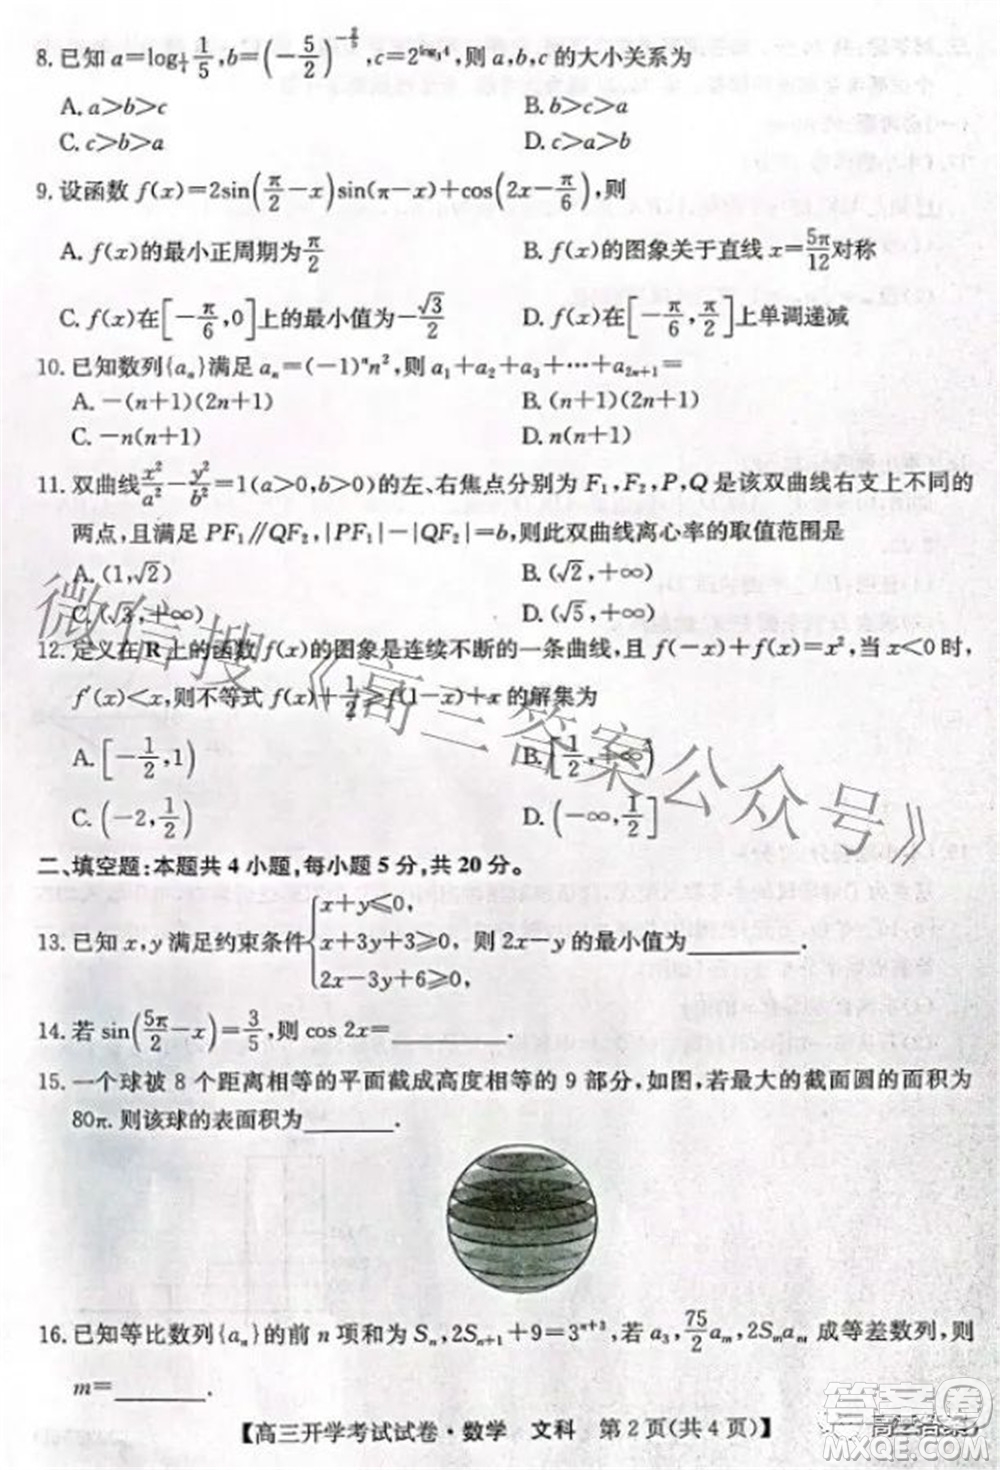 8. 已知 a=log_{1/4} 1/5, b=(-5/2)^{-2/3}, 则 a,b,c 的大小关系为
A. a>b>c  B. b>c>a
C. c>b>a  D. c>a>b
9. 设函数 f(x)=2sin(π/2-x)sin(π-x)+cos(2x-π/6), 则
A. f(x)的最小正周期为π/2  B. f(x)的图象关于直线 x=5π/12 对称
C. f(x)在[-π/6,0]上的最小值为-√3/2  D. f(x)在[-π/6,π/2]上单调递减
10. 已知数列{aₙ}满足 aₙ=(-1)ⁿn², 则 a₁+a₂+a₃+⋯+a₂ₙ₊₁=
A. -(n+1)(2n+1)  B. n(2n+1)
C. -n(n+1)  D. (n+1)²
11. 双曲线 x²/a²-y²/b²=1(a>0,b>0)的左、右焦点分别为 F₁,F₂,P,Q 是该双曲线右支上不同的
两点,且满足 PF₁∥QF₂,|PF₁|-|QF₂|=b,则此双曲线离心率的取值范围是
A. (1,√2)  B. (√2,+∞)
C. (√3,+∞)  D. (√5,+∞)
12. 定义在 R 上的函数 f(x)的图象是连续不断的一条曲线,且 f(-x)+f(x)=x²,当 x<0时,
f′(x)<x,则不等式 f(x)+1/2≥f(1-x)+x 的解集为
A. [-1/2,1)  B. [1/2,+∞)
C. (-2,1/2)  D. (-∞,1/2]
二、填空题:本题共 4 小题,每小题 5 分,共 20 分。
13. 已知 x,y 满足约束条件{x+y≤0, x+3y+3≥0, 2x-3y+6≥0, 则 2x-y 的最小值为________.
14. 若 sin(5π/2-x)=3/5,则 cos 2x=________.
15. 一个球被 8 个距离相等的平面截成高度相等的 9 部分,如图,若最大的截面圆的面积为
80π.则该球的表面积为________.
16. 已知等比数列{aₙ}的前 n 项和为 Sₙ,2Sₙ₊₁+9=3ⁿ⁺³,若 a₃,75/2 aₘ,2Sₘaₘ 成等差数列,则
m=________.
【高三开学考试试卷·数学 文科 第 2 页(共 4 页)】
微信搜《高三答案公众号》
答案圈
MXQE.COM